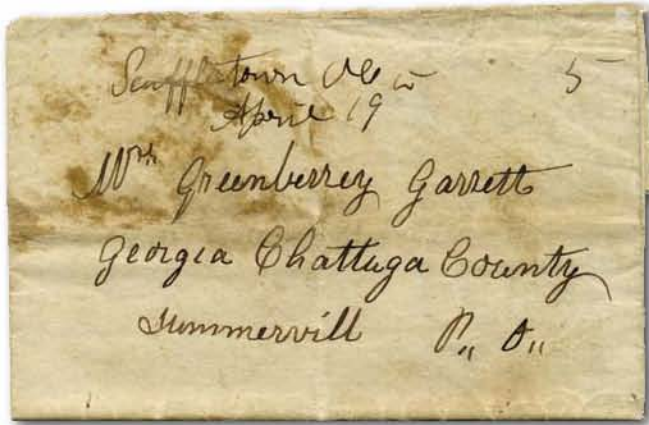 Scuffletown 5
April 19
Mrs Greenberrey Garrett
Georgia Chattuga County
Summervill P,, O,,